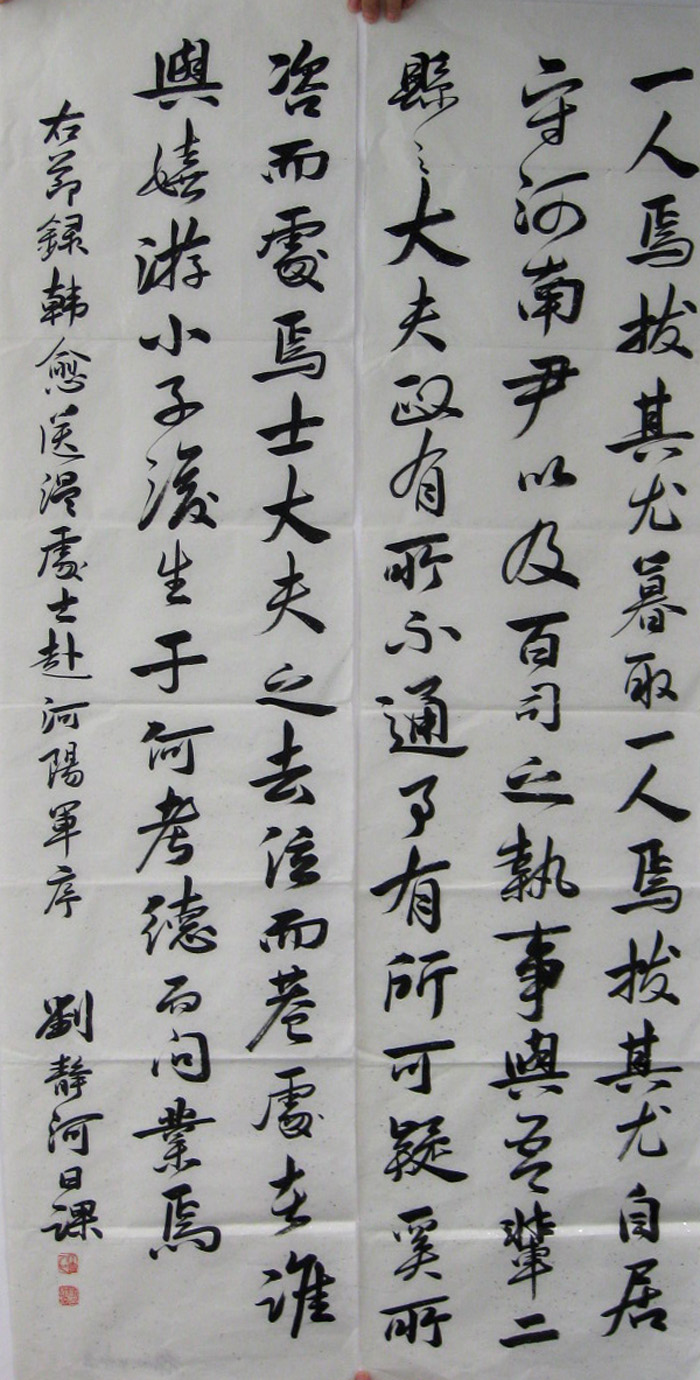 一人焉拔其尤暮取一人焉拔其尤自居
守河南尹以及百司之執事與吾輩二
縣之大夫政有所不通事有所可疑奚所
咨而處焉士大夫之去位而巷處者誰
與嬉游小子後生于何考德而问業焉
右節録韓愈送溫處士赴河陽軍序 劉靜河日課